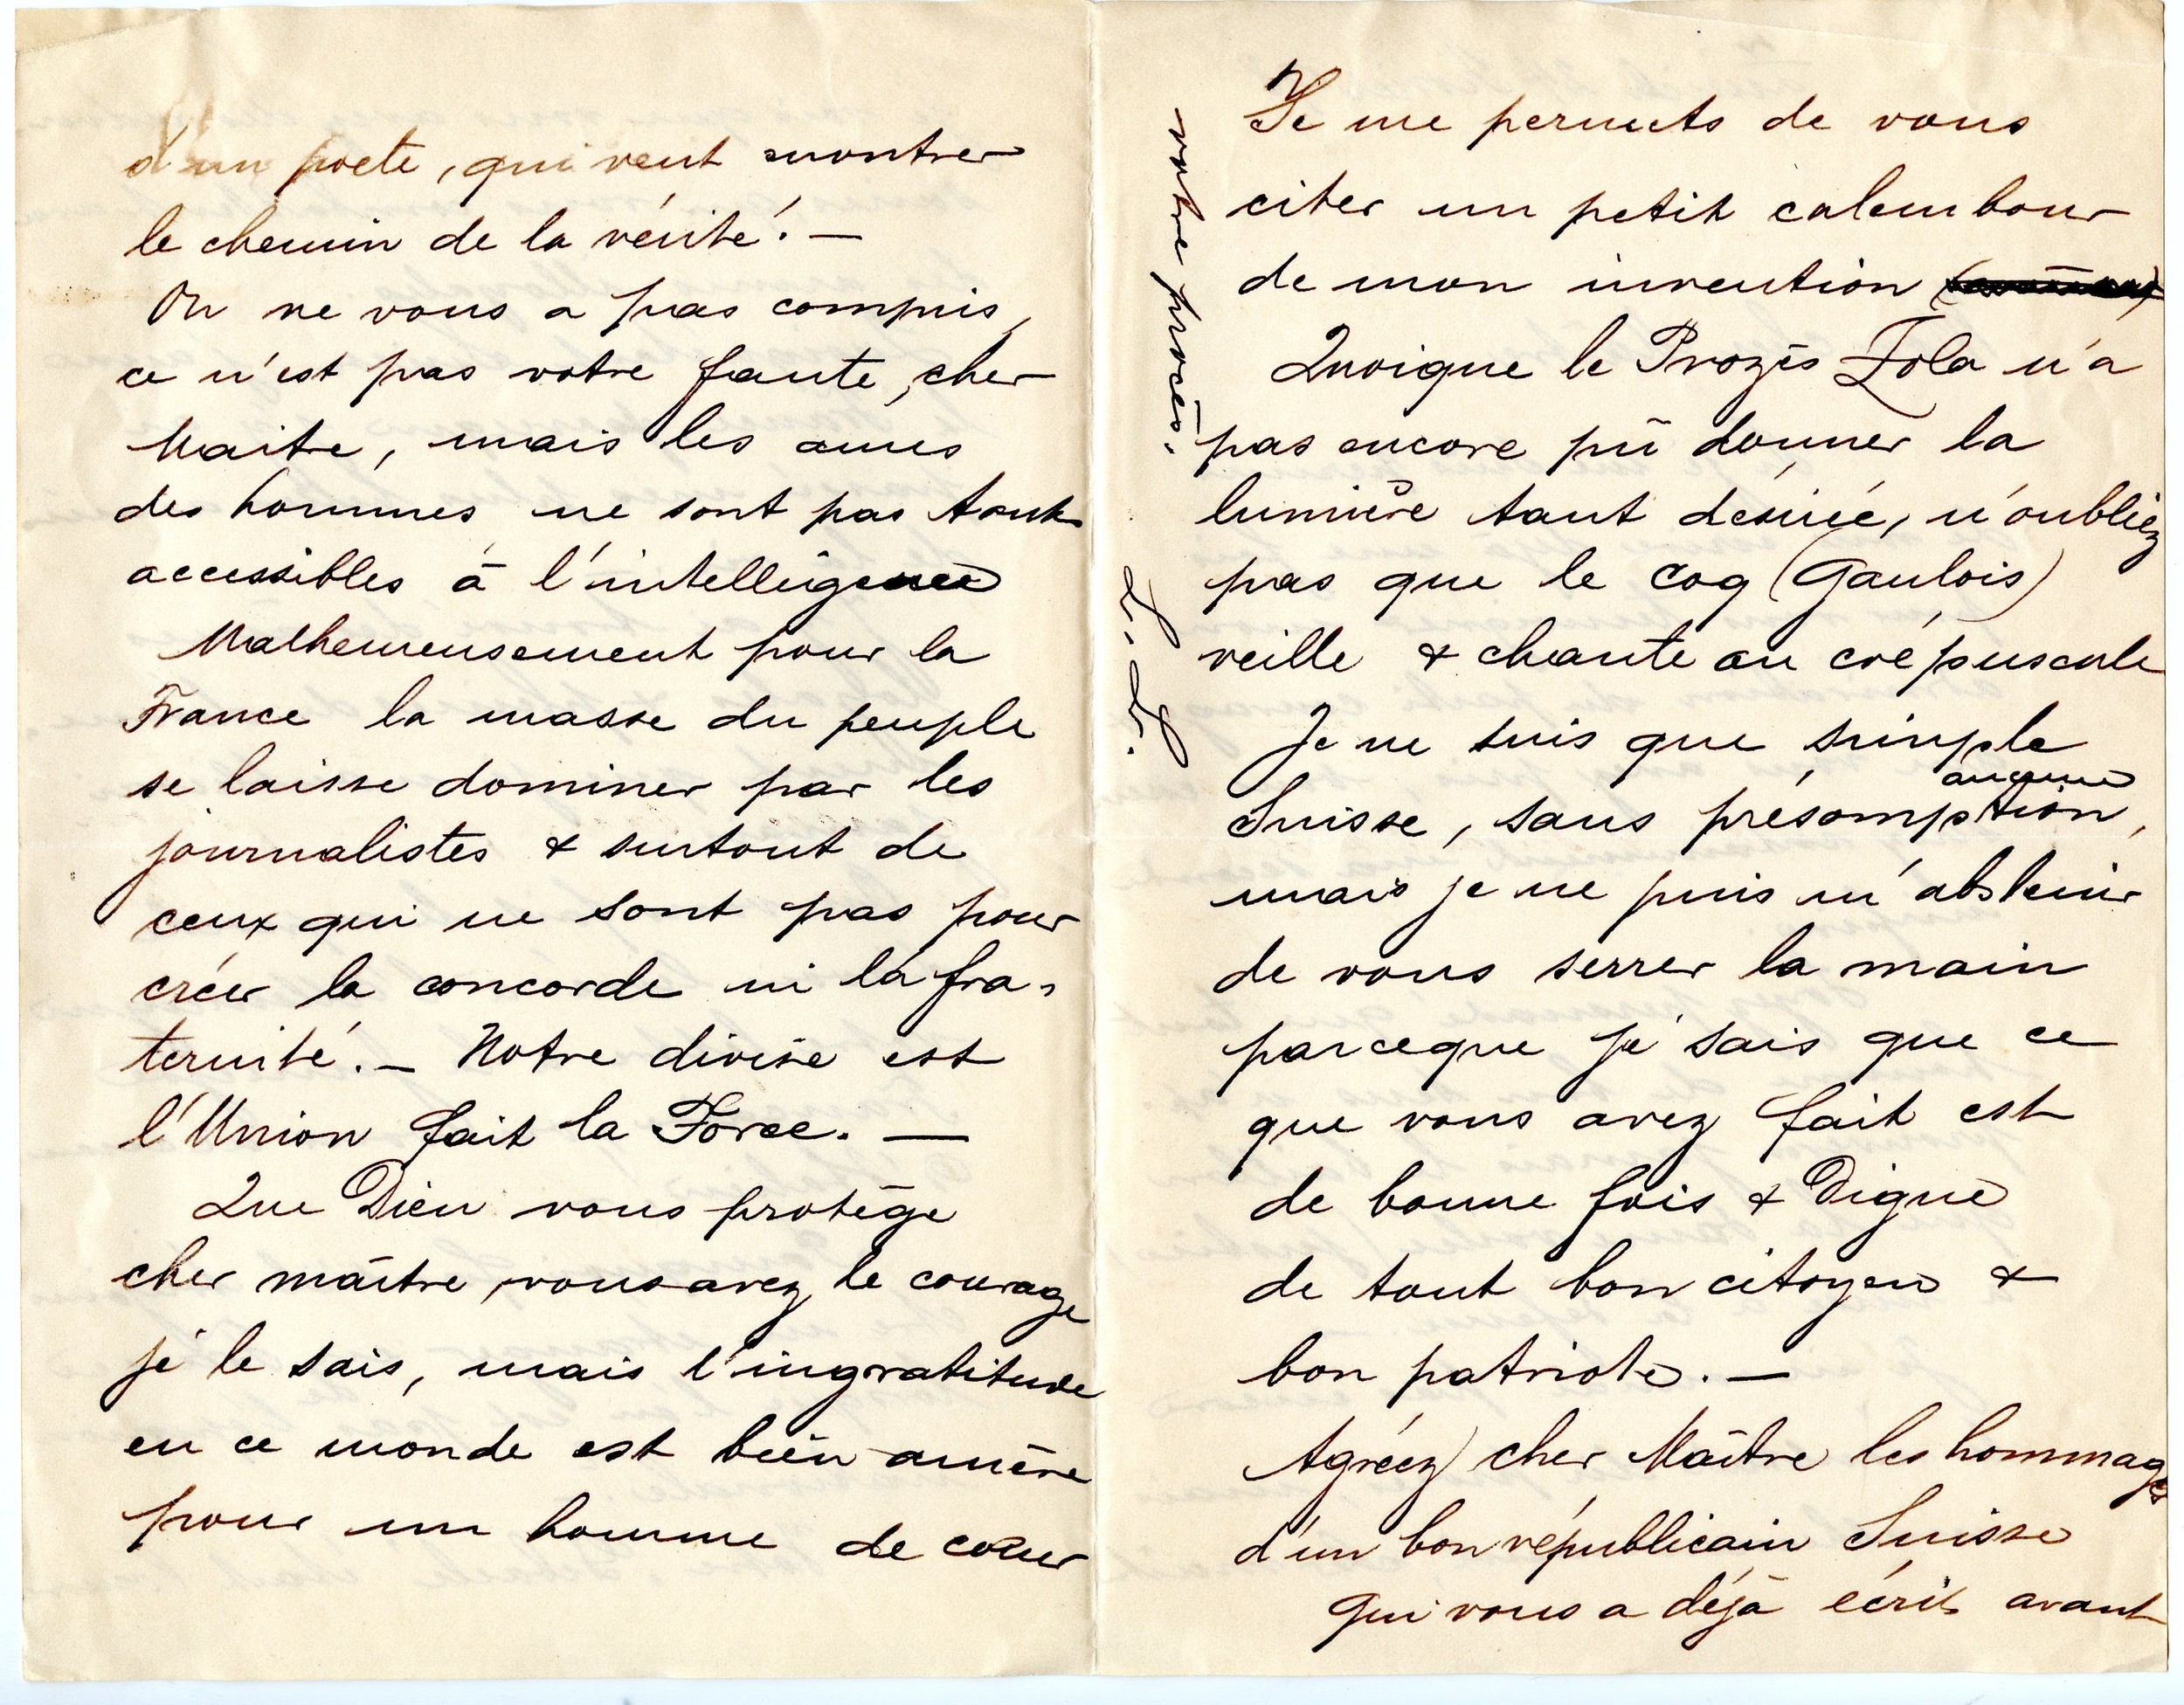 d'un poete, qui veut montrer
le chemin de la vérité! —
On ne vous a pas compris,
ce n'est pas votre faute, cher
Maitre, mais les ames
des hommes ne sont pas touts
accessibles à l'intelligence
Malheureusement pour la
France la masse du peuple
se laisse dominer par les
journalistes & surtout de
ceux qui ne sont pas pour
créer la concorde ni la fra-
ternité. — Notre divise est
l'Union fait la Force. —
Que Dieu vous protège
cher maître, vous avez le courage
je le sais, mais l'ingratitude
en ce monde est bien amère
pour un homme de cœur
Je me permets de vous
citer un petit calembour
de mon invention
Quoique le Prozès Zola n'a
pas encore pû donner la
lumière tant désirée, n'oubliez
pas que le coq (Gaulois)
veille & chante au crépuscule
Je ne suis que simple
Suisse, sans présomption aucune,
mais je ne puis m'abstenir
de vous serrer la main
parceque je sais que ce
que vous avez fait est
de bonne fois & Digne
de tout bon citoyen &
bon patriote. —
Agréez cher Maître les hommages
d'un bon républicain Suisse
qui vous a déjà écrit avant
votre procès.
L. L.